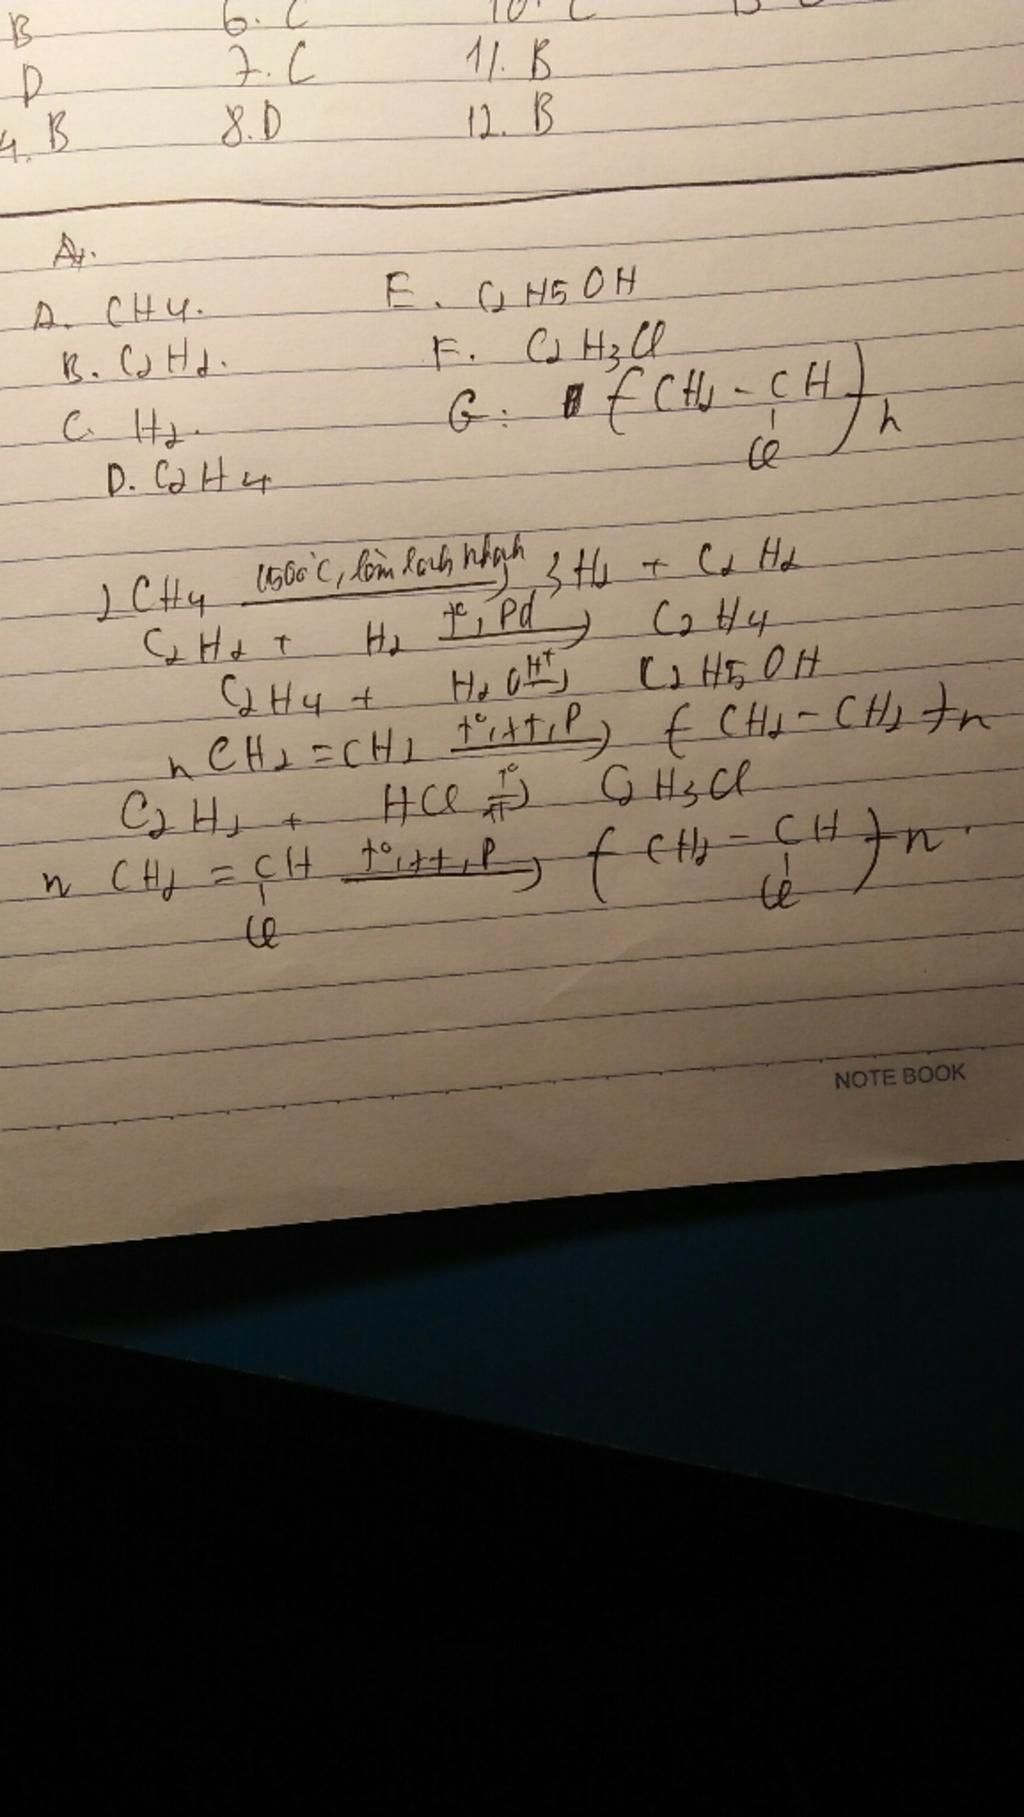 B 6. C 10. C
D 7. C 11. B
4. B 8. D 12. B
A.
A. CH4. E. C2H5OH
B. C2H2. F. C2H3Cl
C. H2. G: (CH2 - CH)n
Cl
D. C2H4
2CH4 1500°C, làm lạnh nhanh → 3H2 + C2H2
C2H2 + H2 t°, Pd → C2H4
C2H4 + H2O H+ → C2H5OH
n CH2 = CH2 t°, xt, P → (CH2 - CH2)n
C2H2 + HCl t° xt → C2H3Cl
n CH2 = CH t°, xt, P → (CH2 - CH)n.
Cl Cl
NOTE BOOK